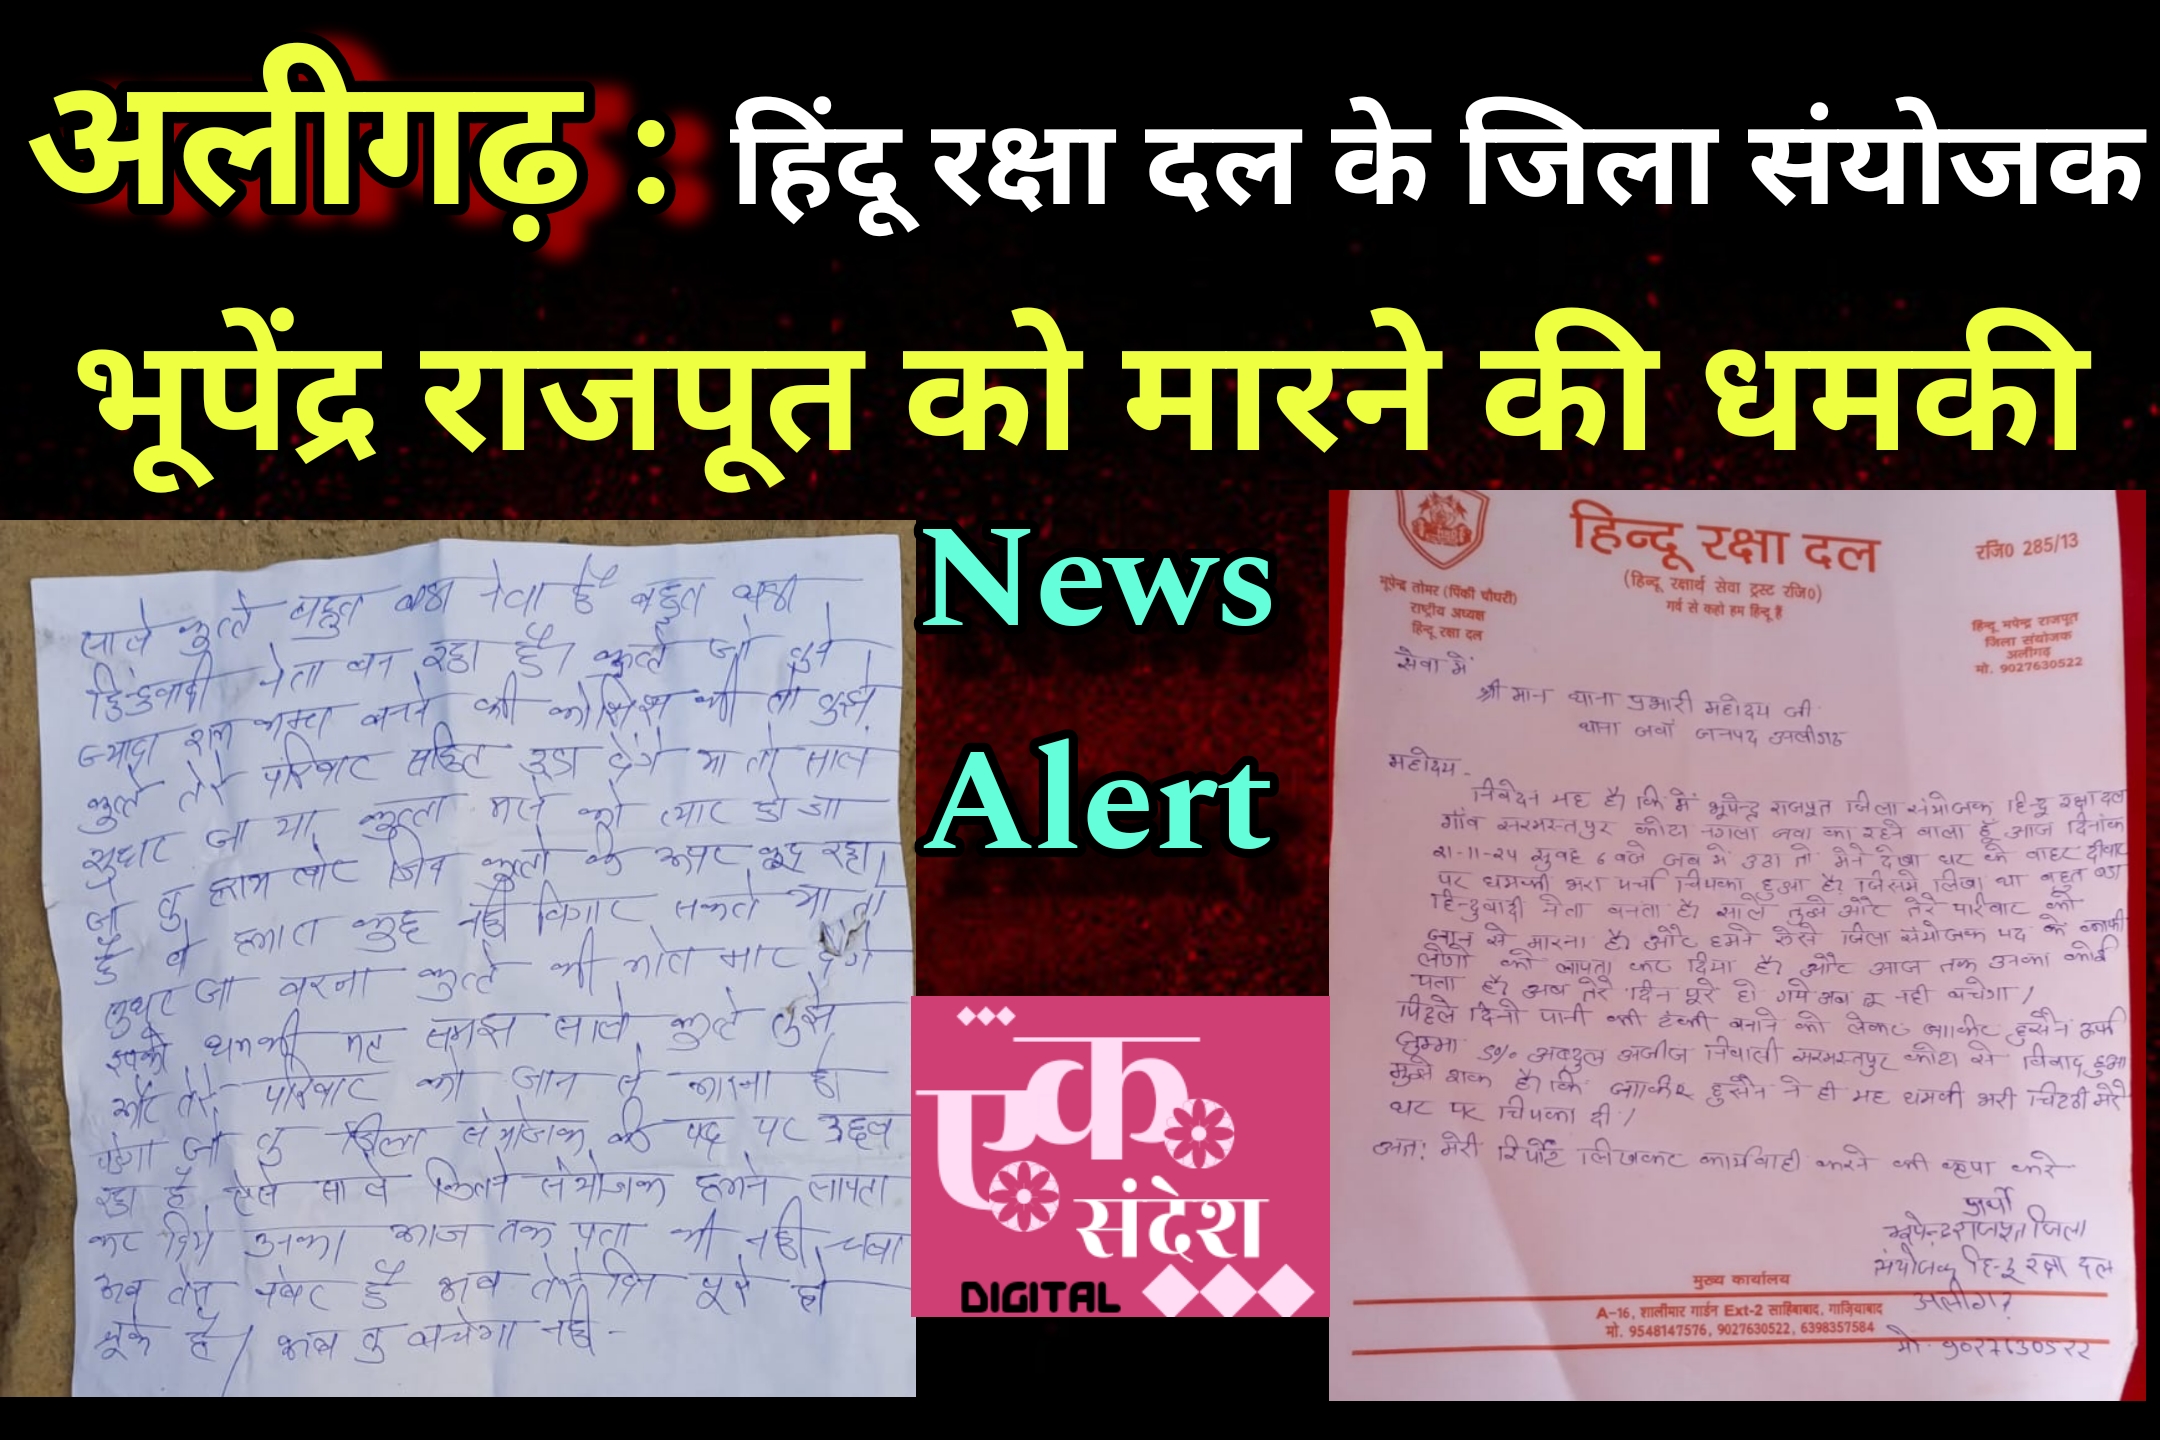 अलीगढ़ : हिंदू रक्षा दल के जिला संयोजक
भूपेंद्र राजपूत को मारने की धमकी
साले कुत्ते बहुत बडा नेता है बहुत बडा
हिन्दुवादी नेता बन रहा है। कुत्ते जो तुने
ज्यादा बनने की कोशिश की तो तुझे
कुत्ते तेरे परिवार सहित उडा देंगे या तो साले
सुधार जा या कुत्ता मरने को त्यार हो जा
जो तु हराम खोर जिन कुत्तो के कुद रहा
है वो हमारा कुछ नही विगार सकते या तो
सुधर जा वरना कुत्ते की मोत मार देंगे
इसको धमकी मत समझ साले कुत्ते तुझे
और तेरे परिवार को जान से मारना हो
पडेगा जो तु जिला संयोजक के पद पर उछल
रहा है ऐसे साले कितने संयोजक हमने लापता
कर दिये उनका आज तक पता भी नही चला
अब तेरा नंबर है अब तेरे दिन पूरे हो
चूके है / अब तु बचेगा नही -
News
Alert
एक
संदेश
DIGITAL
हिन्दू रक्षा दल
रजि0 285/13
(हिन्दू रक्षार्थ सेवा ट्रस्ट रजि0)
गर्व से कहो हम हिन्दू हैं
भूपेन्द्र तोमर (पिंकी चौधरी)
राष्ट्रीय अध्यक्ष
हिन्दू रक्षा दल
हिन्दू भपेन्द्र राजपूत
जिला संयोजक
अलीगढ़
मो. 9027630522
सेवा में
श्री मान थाना प्रभारी महोदय जी
थाना जवाँ जनपद अलीगढ
महोदय -
निवेदन यह है। कि में भूपेन्द्र राजपूत जिला संयोजक हिन्दू रक्षा दल
गाँव सरमस्तपुर कोटा नगला जवा का रहने वाला हूँ आज दिनांक
21-11-24 सुवह 6 वजे जव में उठा तो मेने देखा घर के वाहर दीवार
पर धमकी भरा पर्चा चिपका हुआ है? जिसमे लिखा था बहुत बडा
हिन्दुवादी नेता बनता है। साले तुझे और तेरे परिवार को
जान से मारना है। और हमने ऐसे जिला संयोजक पद के काफी
लोगो को लापता कर दिया है। और आज तक उनका कोई
पता है। अब तेरे दिन पूरे हो गये अब तू नही बचेगा /
पिछले दिनो पानी की टंकी बनाने को लेकर जाकीर हुसैन उर्फ
छुम्मा S/o अबदुल अजीज निवासी सरमस्तपुर कोटा से विवाद हुआ
मुझे शक है। कि जाकिर हुसैन ने ही यह धमकी भरी चिटठी मेरे
घर पर चिपका दी /
अतः मेरी रिर्पोट लिखकर कार्यवाही करने की कृपा करे
प्रार्थी
भूपेन्द्र राजपूत जिला
संयोजक हिन्दू रक्षा दल
अलीगढ़
मुख्य कार्यालय
A-16, शालीमार गार्डन Ext-2 साहिबाबाद, गाजियाबाद
मो. 9548147576, 9027630522, 6398357584
मो- 9027630522